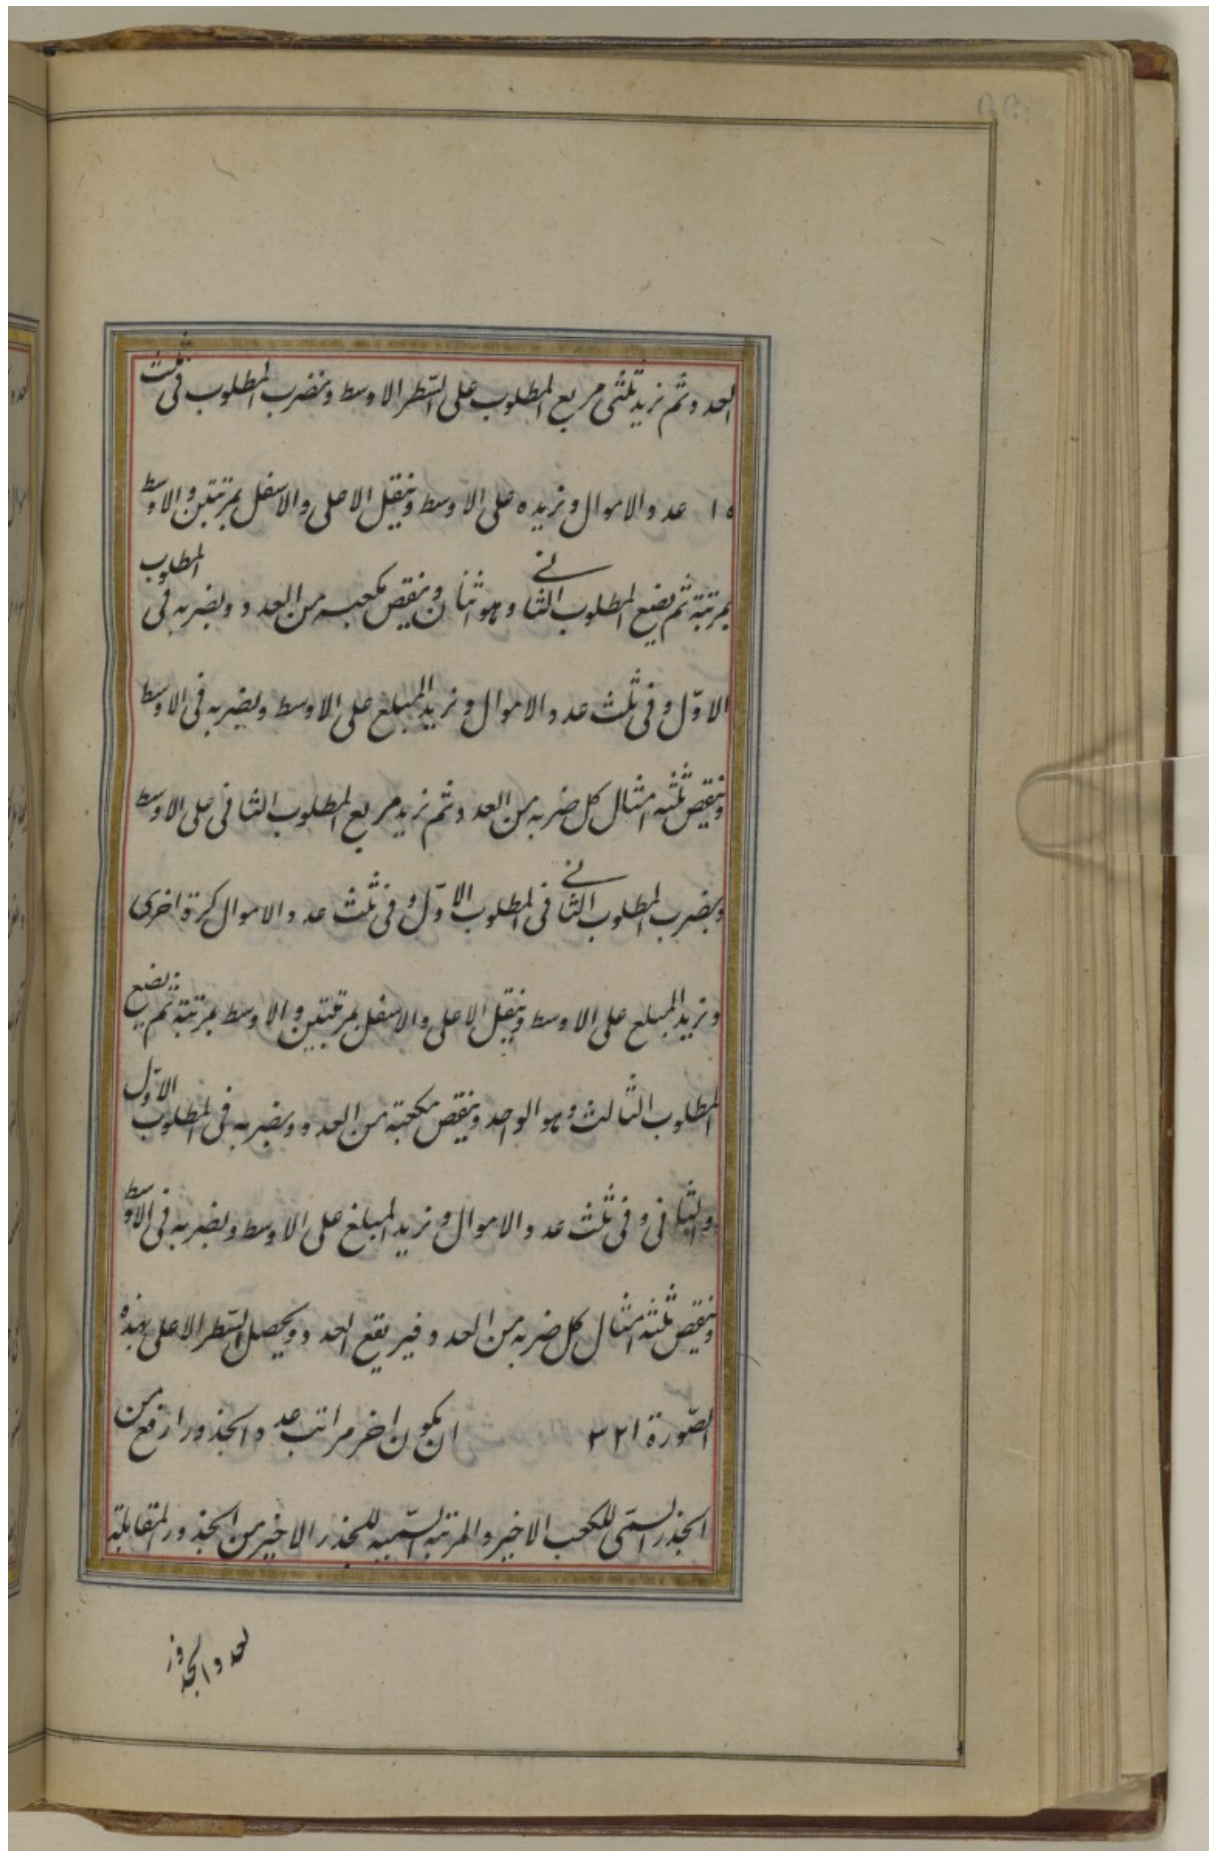 العدد ثم نزيد ثلثى مربع المطلوب على السّطر الاوسط ونضرب المطلوب فى ثلث
١٥ عدد الاموال ونزيده على الاوسط وننقل الاعلى والاسفل بمرتبتين والاوسط
بمرتبة ثم نضع المطلوب الثانى وهو اثنان وننقص مكعبه من العدد ونضربه فى المطلوب
الاوّل وفى ثلث عدد الاموال ونزيد المبلغ على الاوسط ونضربه فى الاوسط
وننقص ثلثة امثال كل ضربه من العدد ثم نزيد مربع المطلوب الثانى على الاوسط
ونضرب المطلوب الثانى فى المطلوب الاوّل وفى ثلث عدد الاموال كرة اخرى
ونزيد المبلغ على الاوسط وننقل الاعلى والاسفل بمرتبتين والاوسط بمرتبة ثم نضع
المطلوب الثالث وهو الواحد وننقص مكعبة من العدد ونضربه فى المطلوب الاوّل
والثانى وفى ثلث عدد الاموال ونزيد المبلغ على الاوسط ونضربه فى الاوسط
وننقص ثلثة امثال كل ضربه من العدد فيرتفع العدد ويحصل السّطر الاعلى بهذه
الصّورة ٣٢١ ان يكون اخر مراتب عدد الجذور ارفع من
الجذر السمّى للكعب الاخير والمرتبة السّمية للجذر الاخير من الجذور المتقابلة
لعدد الجذور